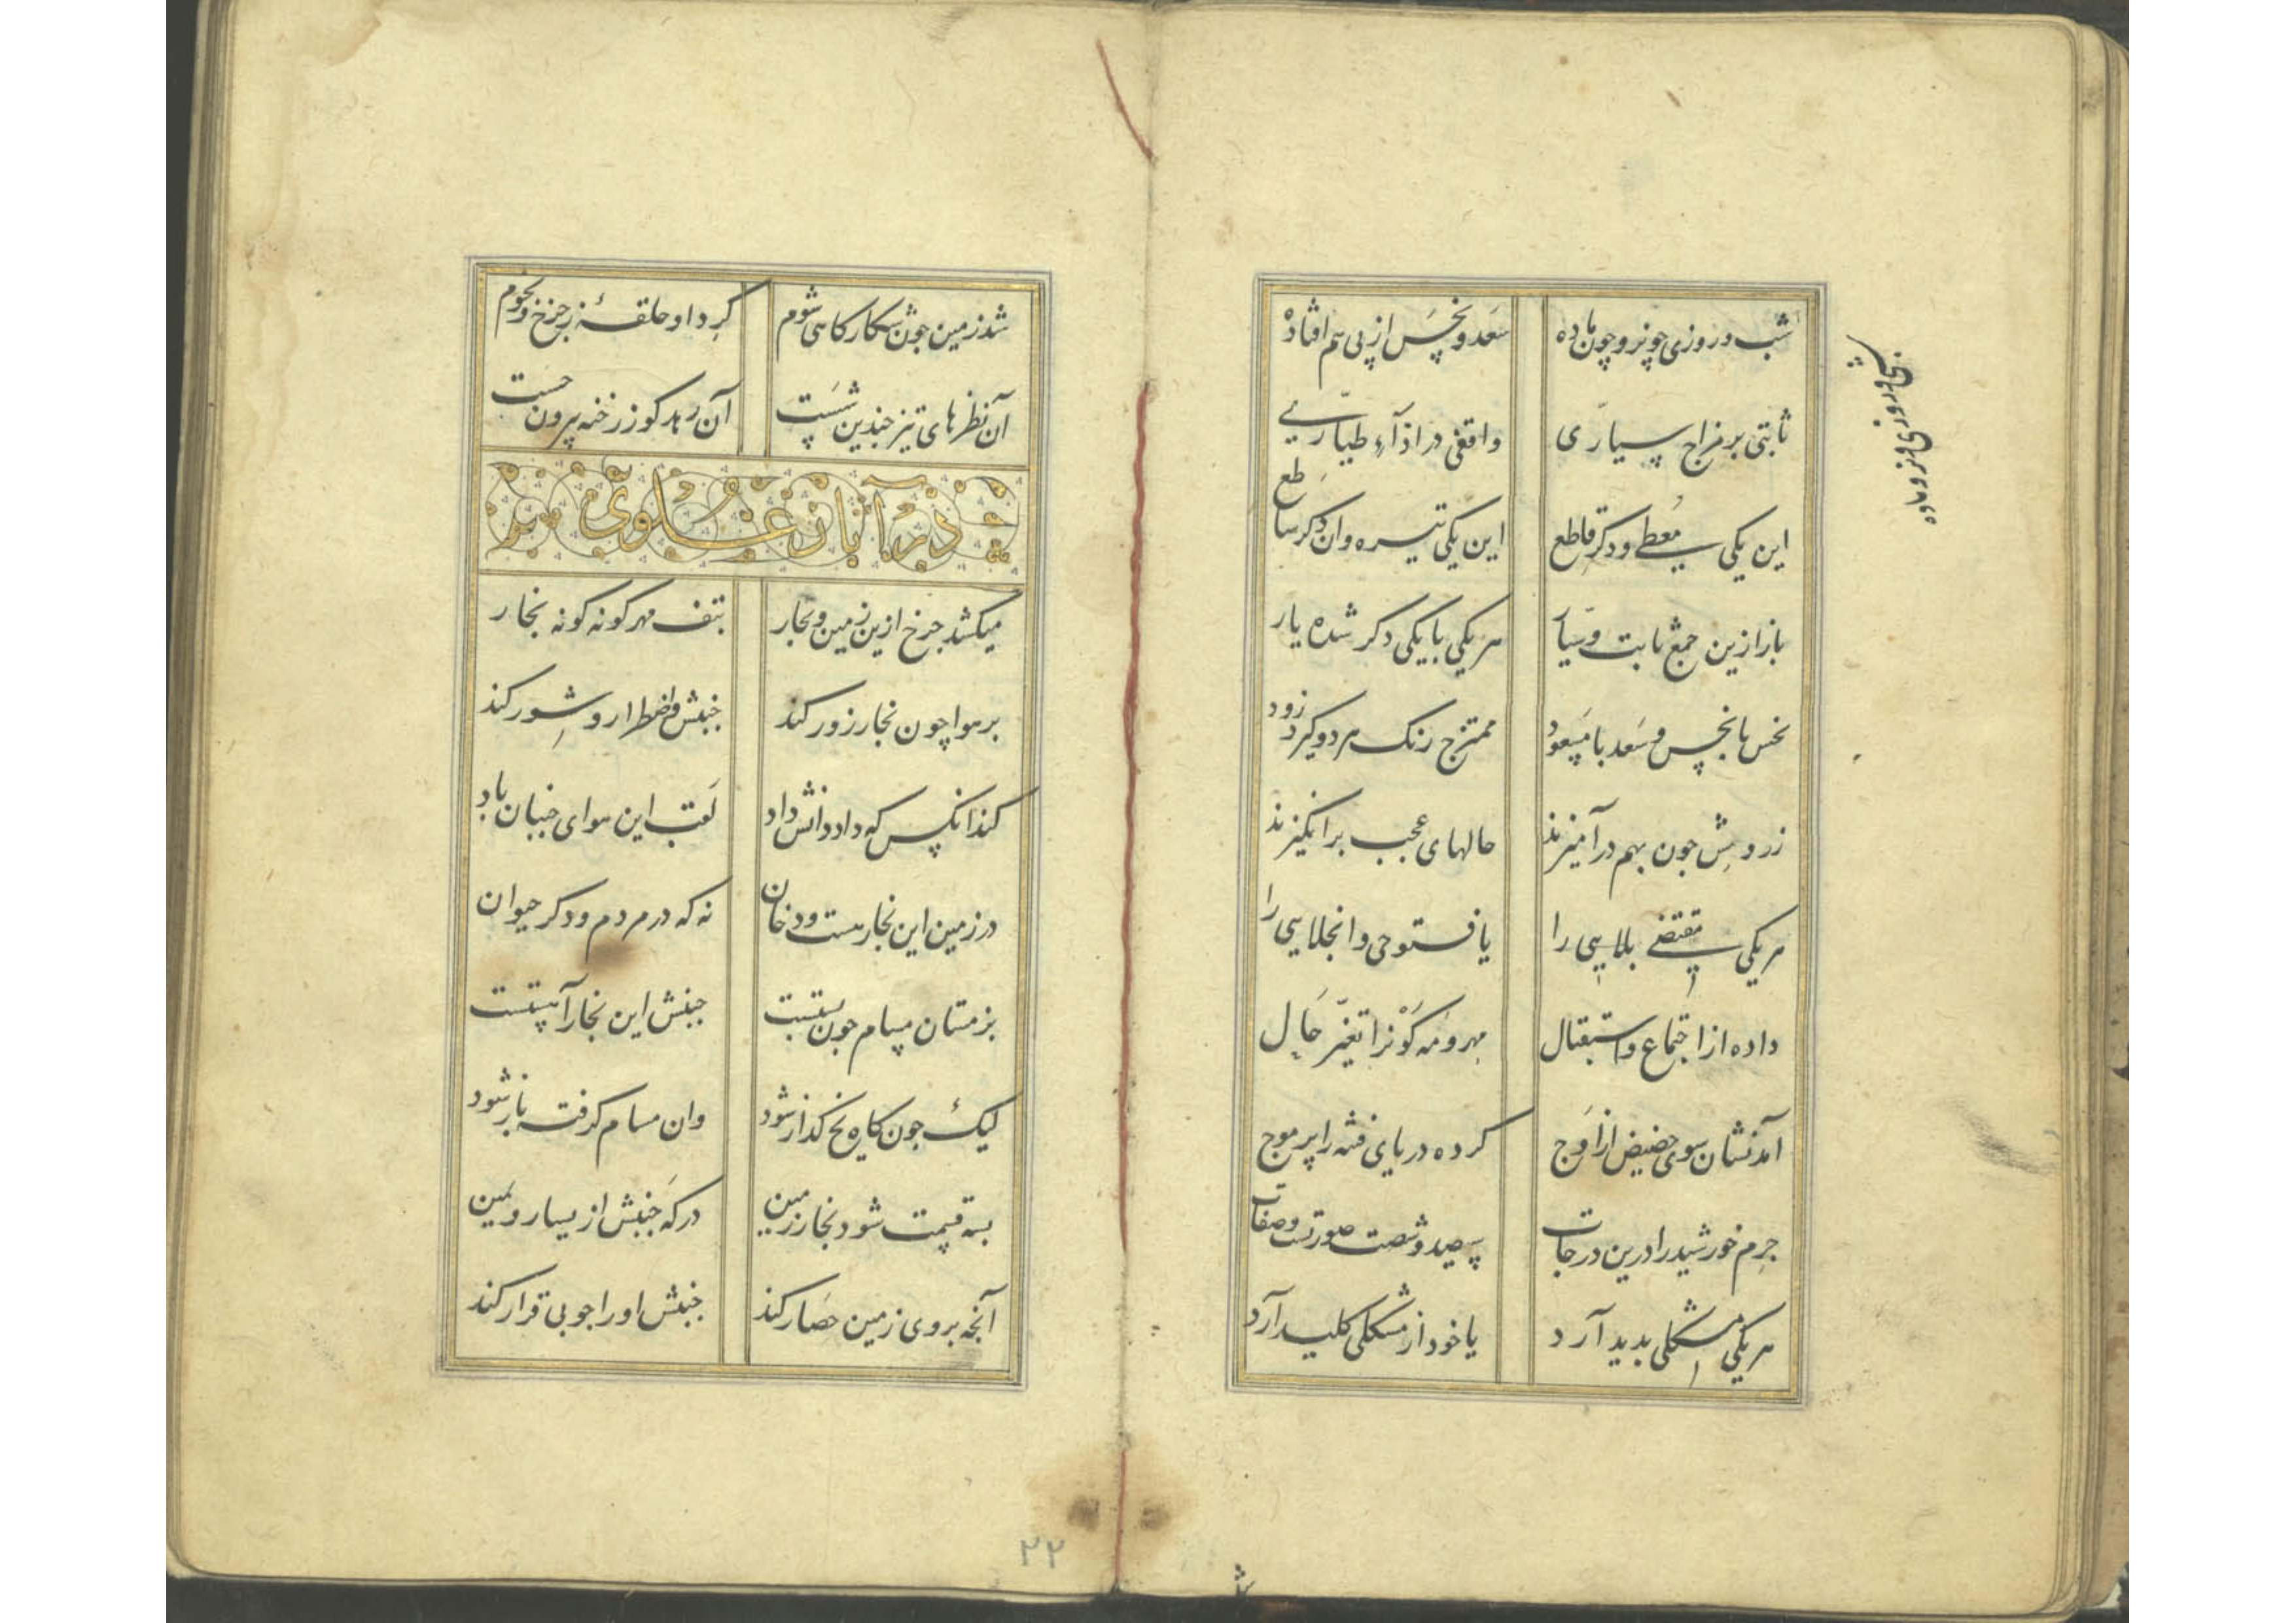 شب و روزی چو نر و چون ماده
سَعد و نحس از پی هم افتاده
ثابتی بر مزاج سیاری
واقفی در اذآء طیاری
این یکی معطی و دکر قاطع
این یکی تیره وان دکر ساطع
باز ازین جمع ثابت و سیار
هر یکی با یکی دکر شده یار
نحس با نحس و سَعد با مسعود
ممتزج رنک هر دو کیرد زود
زر و مس چون بهم در آمیزند
حالهای عجب برانکیزند
هر یکی مقتضی بلایی را
یا فتوحی و انجلایی را
داده از اجتماع و استقبال
مهر و مه کونرا تغیر حال
آمدنشان سوی حضیض از اوج
کرده دریای فتنه را پر موج
جرم خورشید را درین درجات
سیصد و شصت صورتست و صفات
هر یکی مشکلی بدید آرد
یا خود از مشکلی کلید آرد
شب و روزی و نر و ماده
شد زمین جون شکار کاهی شوم
کرد او حلقهٔ ز جرخ و نجوم
آن نظرهای تیز جندین شست
آن رهد کو ز رخنه بیرون جست
در آثار علوی
میکشد جرخ ازین زمین و بحار
بتف مهر کونه کونه بخار
بر هوا چون بخار زور کند
جنبش و اضطرار و شور کند
کند انکس که داد دانش داد
لقب این هوای جنبان باد
در زمین این بخار هست و دخان
نه که در مردم و دکر حیوان
بزمستان مسام جون بستست
جنبش این بخار آهستست
لیک جون کاه یخ کداز شود
وان مسام کرفته باز شود
بسه قسمت شود بخار زمین
در که جنبش از یسار و یمین
آنجه بروی زمین حصار کند
جنبش او را جو بی قرار کند
۲۲